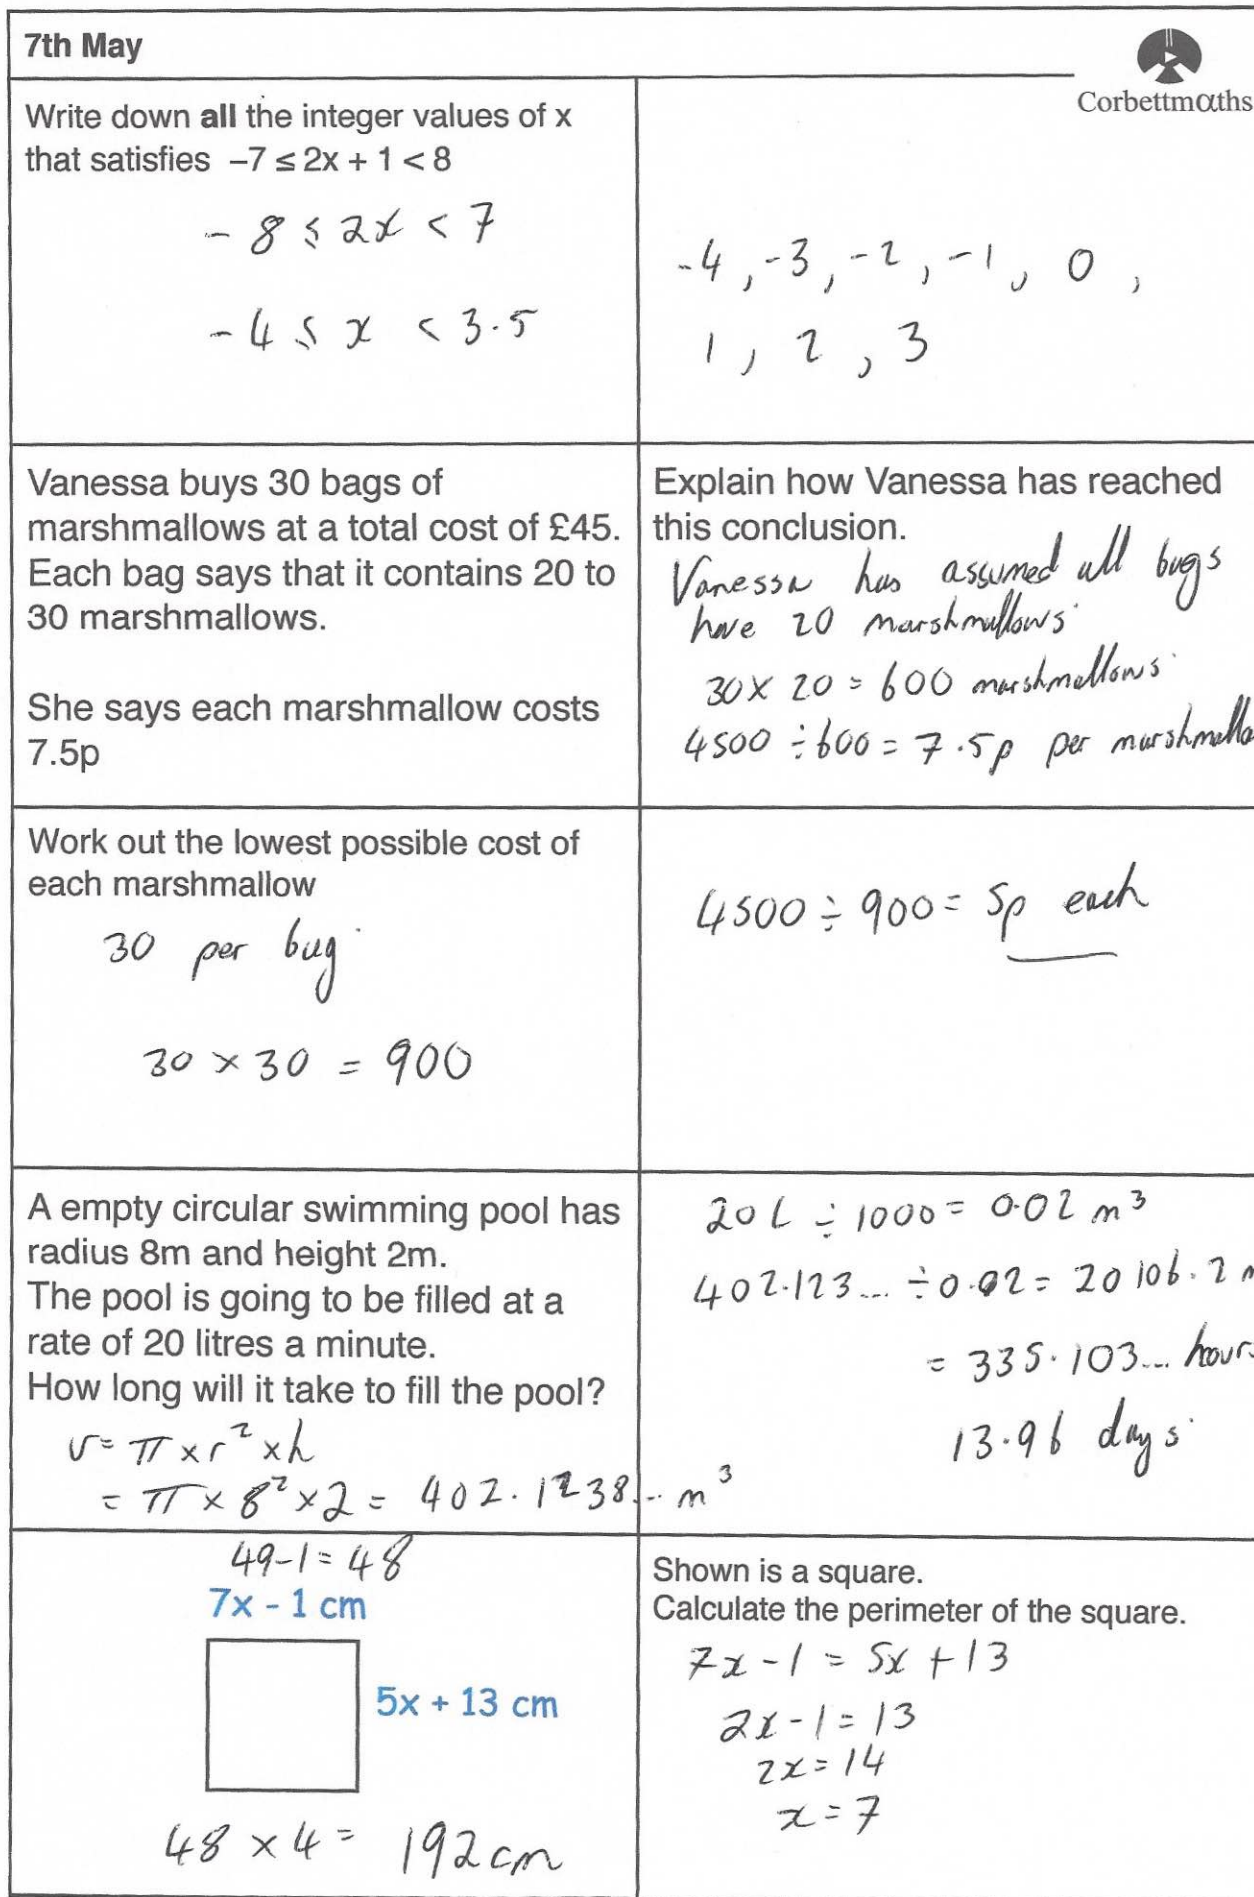 7th May
Corbettmαths
Write down all the integer values of x
that satisfies −7 ≤ 2x + 1 < 8
- 8 ≤ 2x < 7
- 4 ≤ x < 3.5
-4, -3, -2, -1, 0,
1, 2, 3
Vanessa buys 30 bags of
marshmallows at a total cost of £45.
Each bag says that it contains 20 to
30 marshmallows.
She says each marshmallow costs
7.5p
Explain how Vanessa has reached
this conclusion.
Vanessa has assumed all bags
have 20 marshmallows.
30 × 20 = 600 marshmallows.
4500 ÷ 600 = 7.5p per marshmallo
Work out the lowest possible cost of
each marshmallow
30 per bag.
30 × 30 = 900
4500 ÷ 900 = 5p each
A empty circular swimming pool has
radius 8m and height 2m.
The pool is going to be filled at a
rate of 20 litres a minute.
How long will it take to fill the pool?
v = π × r² × h
= π × 8² × 2 = 402.1238... m³
20 L ÷ 1000 = 0.02 m³
402.123... ÷ 0.02 = 20106.2 m
= 335.103... hours
13.96 days.
49-1 = 48
7x - 1 cm
5x + 13 cm
48 × 4 = 192cm
Shown is a square.
Calculate the perimeter of the square.
7x - 1 = 5x + 13
2x - 1 = 13
2x = 14
x = 7